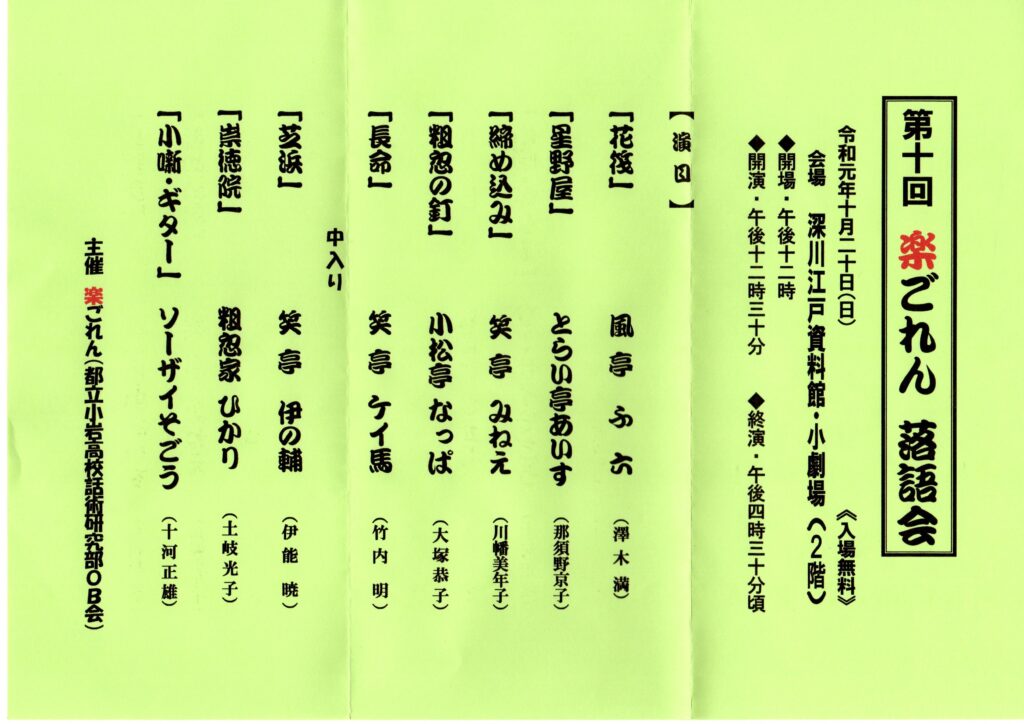 第十回 楽ごれん 落語会
令和元年十月二十日(日) 《入場無料》
会場 深川江戸資料館・小劇場(2階)
◆開場・午後十二時
◆開演・午後十二時三十分 ◆終演・午後四時三十分頃
【演目】
「花筏」 風亭 ふ六 (澤木満)
「星野屋」 とらい亭あいす (那須野京子)
「締め込み」 笑亭 みねえ (川幡美年子)
「粗忽の釘」 小松亭 なっぱ (大塚恭子)
「長命」 笑亭 ケイ馬 (竹内明)
中入り
「芝浜」 笑亭 伊の輔 (伊能暁)
「崇徳院」 粗忽家 ひかり (土岐光子)
「小噺・ギター」 ソーザイそごう (十河正雄)
主催 楽ごれん(都立小岩高校話術研究部OB会)